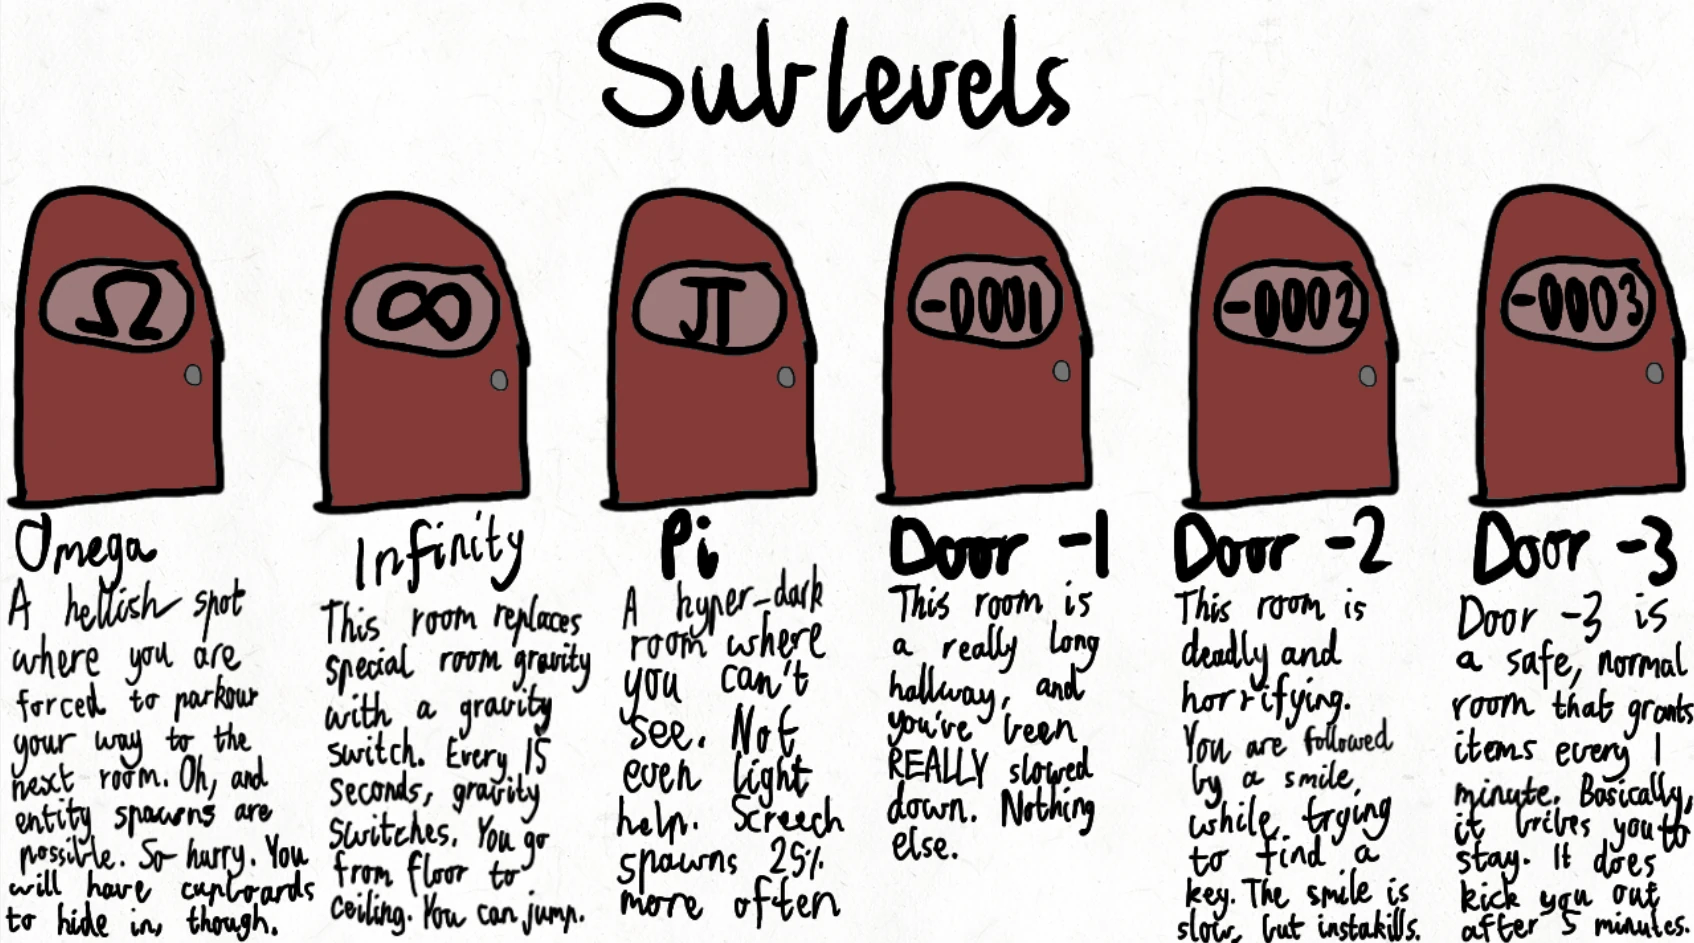 Sub levels
Ω
∞
π
-0001
-0002
-0003
Omega
A hellish spot
where you are
forced to parkour
your way to the
next room. Oh, and
entity spawns are
possible. So hurry. You
will have cupboards
to hide in, though.
Infinity
This room replaces
special room gravity
with a gravity
switch. Every 15
seconds, gravity
switches. You go
from floor to
ceiling. You can jump.
Pi
A hyper-dark
room where
you can't
see. Not
even light
help. Screech
spawns 25%
more often
Door -1
This room is
a really long
hallway, and
you've been
REALLY slowed
down. Nothing
else.
Door -2
This room is
deadly and
horrifying.
You are followed
by a smile,
while trying
to find a
key. The smile is
slow, but instakills.
Door -3
Door -3 is
a safe, normal
room that grants
items every 1
minute. Basically,
it bribes you to
stay. It does
kick you out
after 5 minutes.